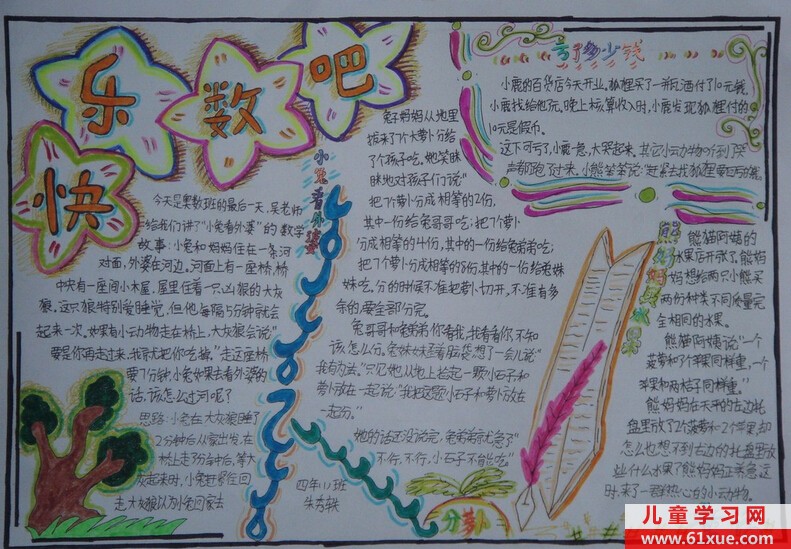 快
乐
数
吧
今天是奥数班的最后一天,吴老师
给我们讲了"小兔看外婆"的数学
故事:小兔和妈妈住在一条河
对面,外婆在河边。河面上有一座桥,桥
中央有一座间小木屋,屋里住着一只凶狠的大灰
狼。这只狼特别爱睡觉,但他每隔5分钟就会
起来一次。如果有小动物走在桥上,大灰狼会说"
要是你再走过来,我就把你吃掉。"走这座桥
要7分钟,小兔如果去看外婆的
话,该怎么过河呢?
思路:小兔在大灰狼睡了
2分钟后从家出发,在
桥上走了3分钟后,等大
灰起来时,小兔赶紧往回
走大灰狼以为小兔回家去
小兔看外婆
兔子妈妈从地里
拔来了7片大萝卜分给
了个孩子吃。她笑眯
眯地对孩子们说"
把7个萝卜分成相等的2份,
其中一份给兔哥哥吃;把7个萝卜
分成相等的4份,其中的一份给兔弟弟吃;
把7个萝卜分成相等的8份,其中的一份给兔妹
妹吃。分的时候不准把萝卜切开,不准有多
余的,要全部分完。
兔哥哥和兔弟弟你看我,我看看你,不知
该怎么分。兔妹妹歪着脑袋想了一会儿说"
我有办法。"只见她从地上拾起一颗小石子和
萝卜放在一起说"我把这颗小石子和萝卜放在
一起分。"
她的话还没说完,兔弟弟就急了"
不行,不行,小石子不能吃。"
四年11班
分萝卜
亏了多少钱
小鹿的百货店今天开业。狐狸买了一瓶酒付了10元钱,
小鹿找给他7元。晚上核算收入时,小鹿发现狐狸付的
10元是假币。
这下可亏了,小鹿一急,大哭起来。其它小动物听到哭
声都跑了过来。小熊笨笨说:"赶紧去找狐狸要回7元钱
熊妈妈买水果
熊猫阿姨的
水果店开张了,熊妈
妈想给两只小熊买
两份种类不同质量完
全相同的水果。
熊猫阿姨说"一个
菠萝和7个苹果同样重,一个
苹果和两桔子同样重。"
熊妈妈在天平的左边托
盘里放了2个菠萝和2个苹果,却
怎么也想不到右边的托盘里放
些什么水果了熊妈妈正着急这
时,来了一群热心的小动物。
儿童学习网
www.61xue.com